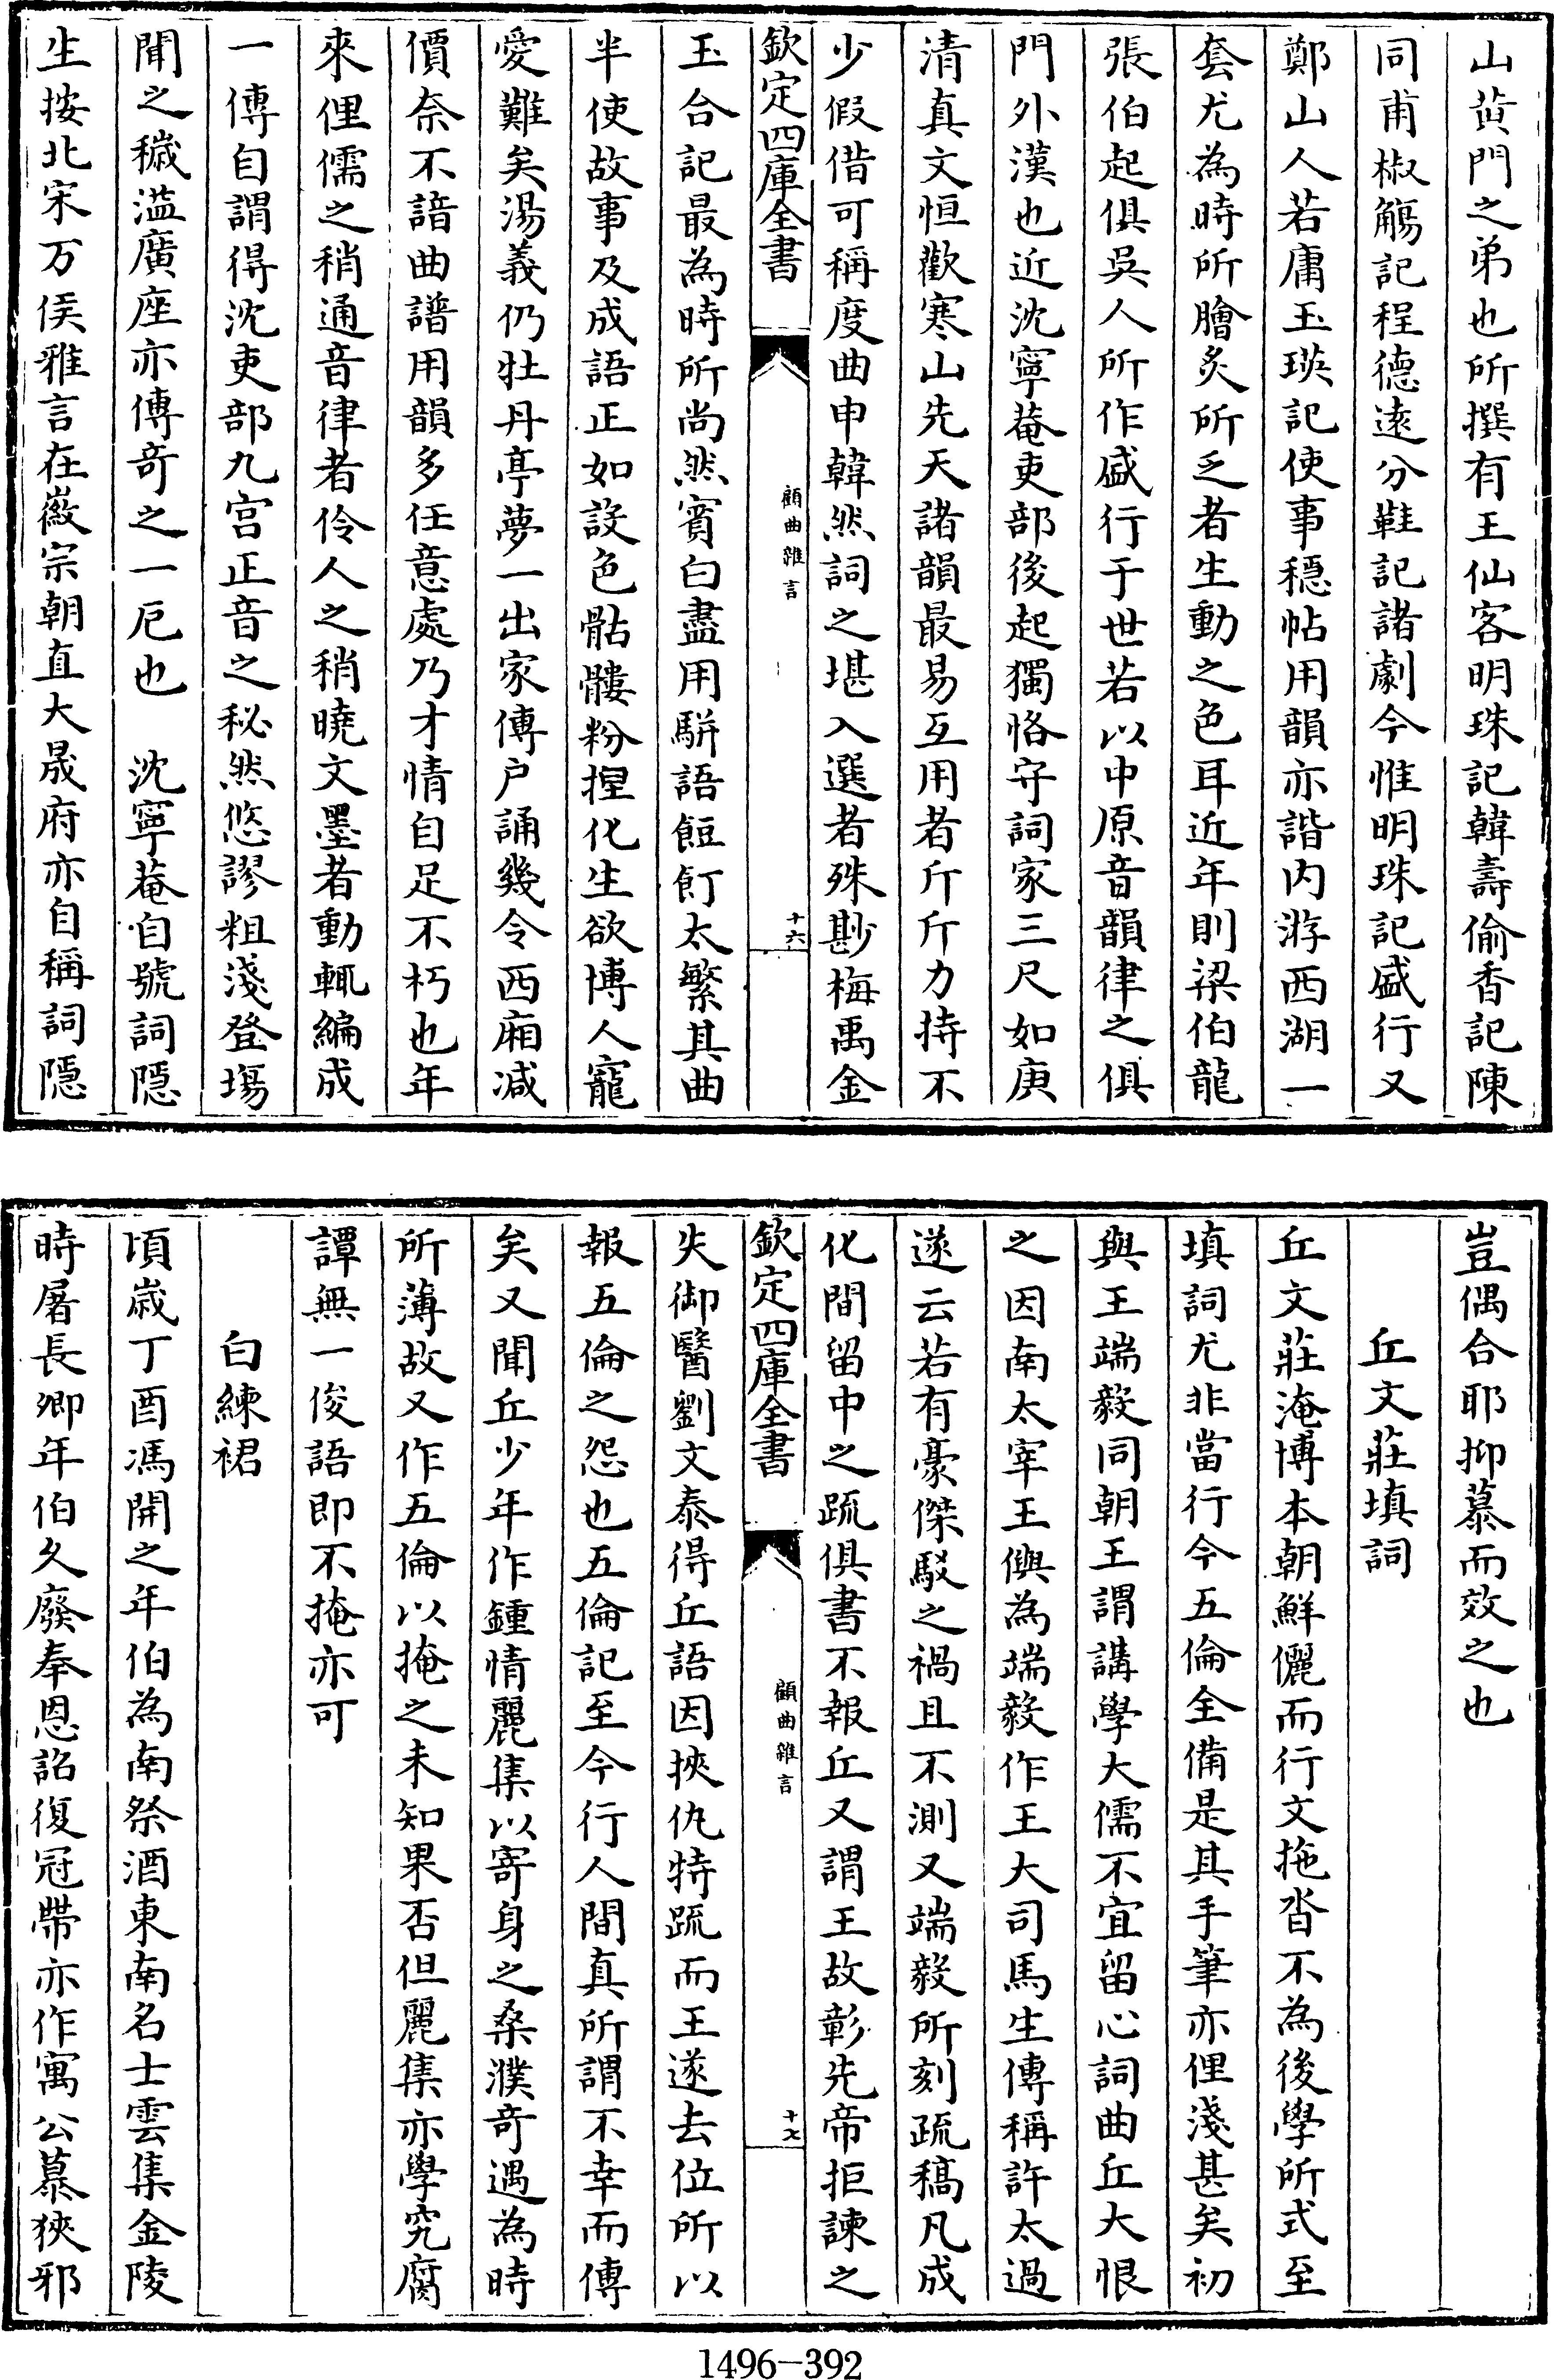 山黄門之弟也所撰有王仙客明珠記韓壽偷香記陳
同甫椒觴記程德逺分鞋記諸劇今惟明珠記盛行又
鄭山人若庸玉瑛記使事穩帖用韻亦諧内游西湖一
套尤為時所膾炙所乏者生動之色耳近年則梁伯龍
張伯起俱吳人所作盛行于世若以中原音韻律之俱
門外漢也近沈寧菴吏部後起獨恪守詞家三尺如庚
清真文恒歡寒山先天諸韻最易互用者斤斤力持不
少假借可稱度曲申韓然詞之堪入選者殊尠梅禹金
欽定四庫全書
顧曲雜言
十六
玉合記最為時所尚然賓白盡用駢語餖飣太繁其曲
半使故事及成語正如設色骷髏粉捏化生欲博人寵
愛難矣湯義仍牡丹亭夢一出家傳户誦幾令西廂減
價奈不諳曲譜用韻多任意處乃才情自足不朽也年
來俚儒之稍通音律者伶人之稍曉文墨者動輒編成
一傳自謂得沈吏部九宫正音之秘然悠謬粗淺登塲
聞之穢溢廣座亦傳奇之一厄也　沈寧菴自號詞隱
生按北宋万俟雅言在徽宗朝直大晟府亦自稱詞隱
豈偶合耶抑慕而效之也
丘文莊填詞
丘文莊淹博本朝鮮儷而行文拖沓不為後學所式至
填詞尤非當行今五倫全備是其手筆亦俚淺甚矣初
與王端毅同朝王謂講學大儒不宜留心詞曲丘大恨
之因南太宰王㒜為端毅作王大司馬生傳稱許太過
遂云若有豪傑駁之禍且不測又端毅所刻疏稿凡成
化間留中之疏俱書不報丘又謂王故彰先帝拒諫之
欽定四庫全書
顧曲雜言
十七
失御醫劉文泰得丘語因挾仇特疏而王遂去位所以
報五倫之怨也五倫記至今行人間真所謂不幸而傳
矣又聞丘少年作鍾情麗集以寄身之桑濮奇遇為時
所薄故又作五倫以掩之未知果否但麗集亦學究腐
譚無一俊語即不掩亦可
白練裙
頃嵗丁酉馮開之年伯為南祭酒東南名士雲集金陵
時屠長卿年伯久廢奉恩詔復冠帶亦作寓公慕狹邪
1496-392